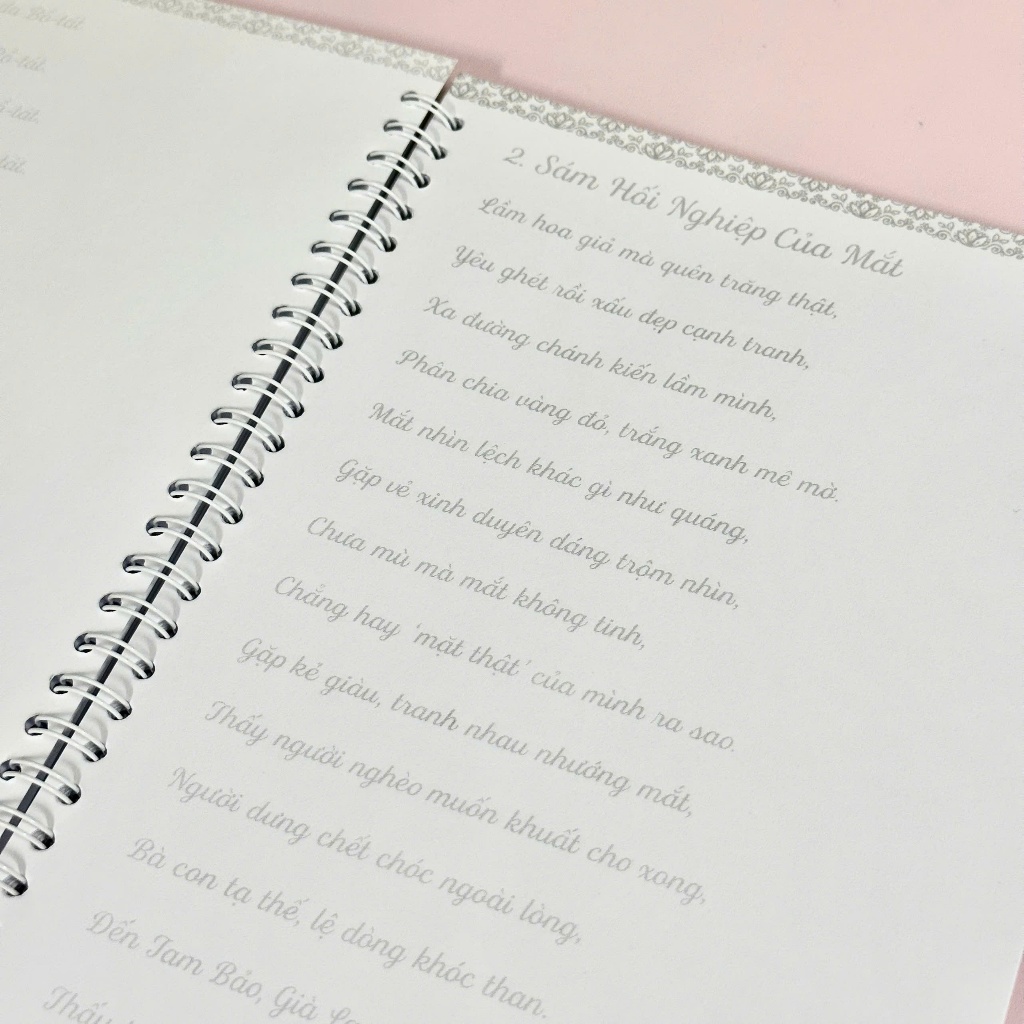 Bồ-tát
Bồ-tát.
tát.
tát.
2. Sám Hối Nghiệp Của Mắt
Lầm hoa giả mà quên trăng thật,
Yêu ghét rồi xấu đẹp cạnh tranh,
Xa đường chánh kiến lầm mình,
Phân chia vàng đỏ, trắng xanh mê mờ.
Mắt nhìn lệch khác gì như quáng,
Gặp vẻ xinh duyên dáng trộm nhìn,
Chưa mù mà mắt không tinh,
Chẳng hay 'mặt thật' của mình ra sao.
Gặp kẻ giàu, tranh nhau nhướng mắt,
Thấy người nghèo muốn khuất cho xong,
Người dưng chết chóc ngoài lòng,
Bà con tạ thế, lệ dòng khóc than.
Đến Tam Bảo, Già
Thấy